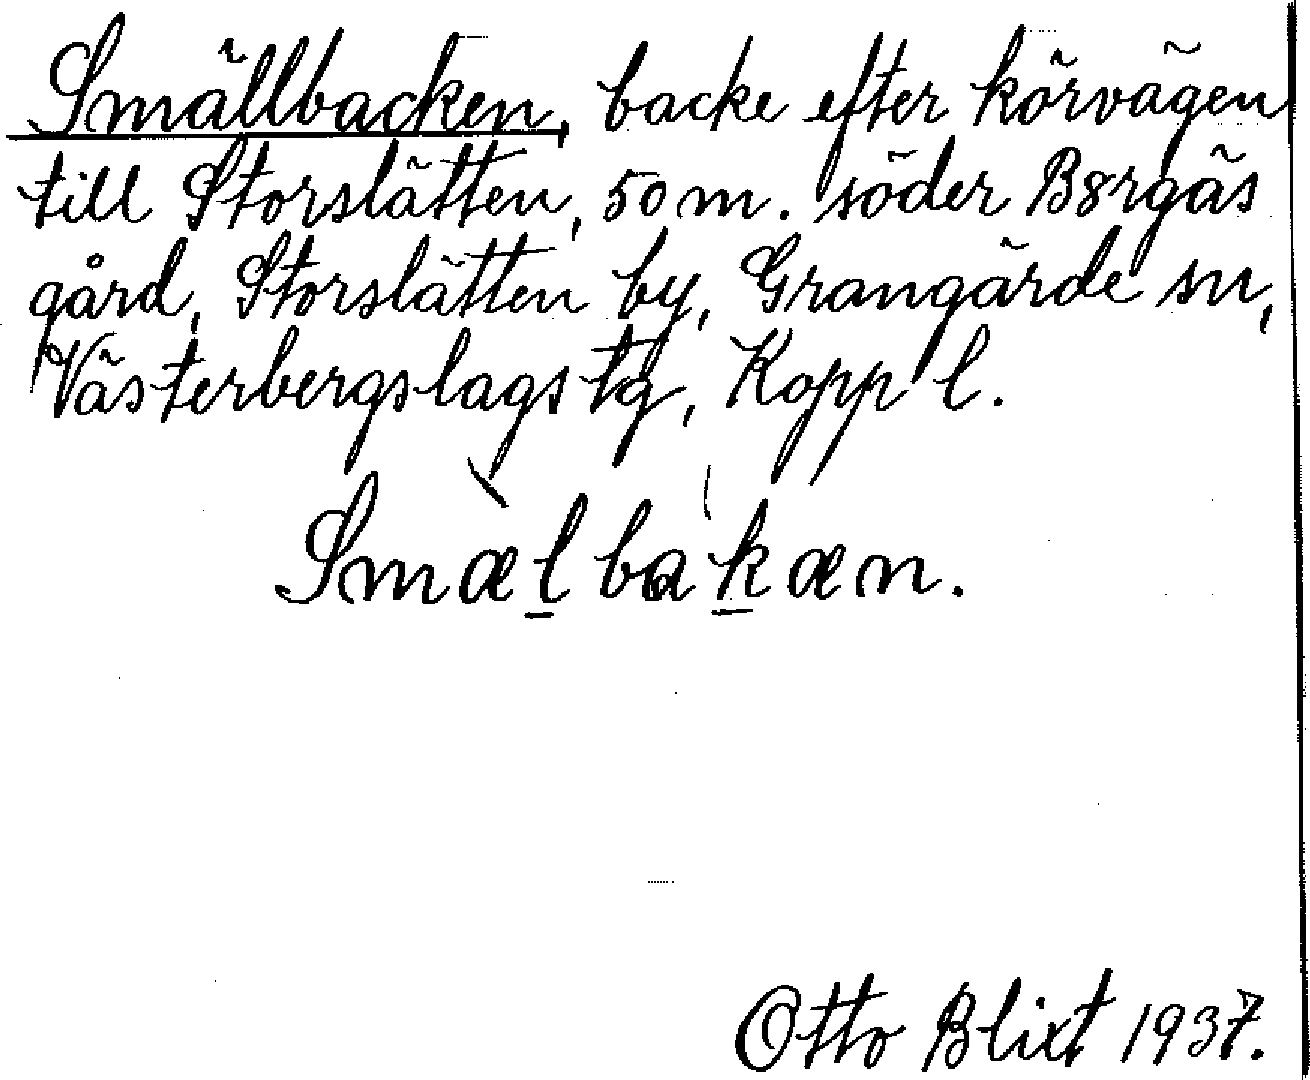 Smällbacken, backe efter körvägen
till Storslätten, 50 m. söder Bergäs
gård, Storslätten by, Grangärde sn,
Västerbergslags tg, Kopp l.
Smælbakæn.
Otto Blixt 1937.